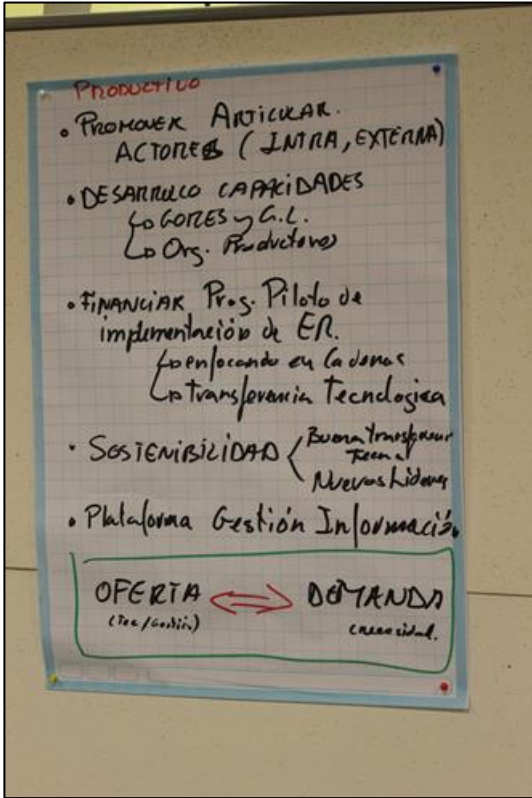 PRODUCTIVO
• PROMOVER ARTICULAR.
ACTORES (INTRA, EXTERNA)
• DESARROLLO CAPACIDADES
↳ GORES y G.L.
↳ Org. Productores
• FINANCIAR Prog. Piloto de
implementación de ER.
↳ enfocando en Cadenas
↳ transferencia Tecnologica
• SOSTENIBILIDAD < Buena
Nuevos Lideres
• Plataforma Gestión Información
OFERTA ⇔ DEMANDA
(Tec/Gestión)